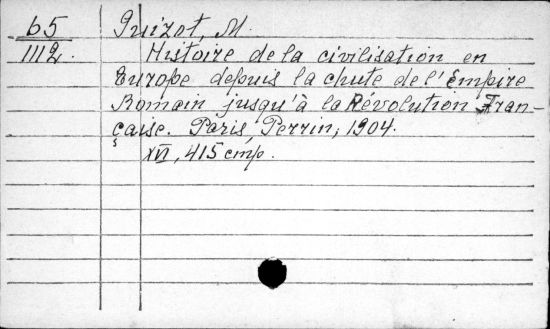 65 Guizot, M.
1112. Histoire de la civilisation en
Europe depuis la chute de l'Empire
Romain jusqu'à la Révolution Fran-
çaise. Paris, Perrin, 1904.
XVI, 415 cmp.